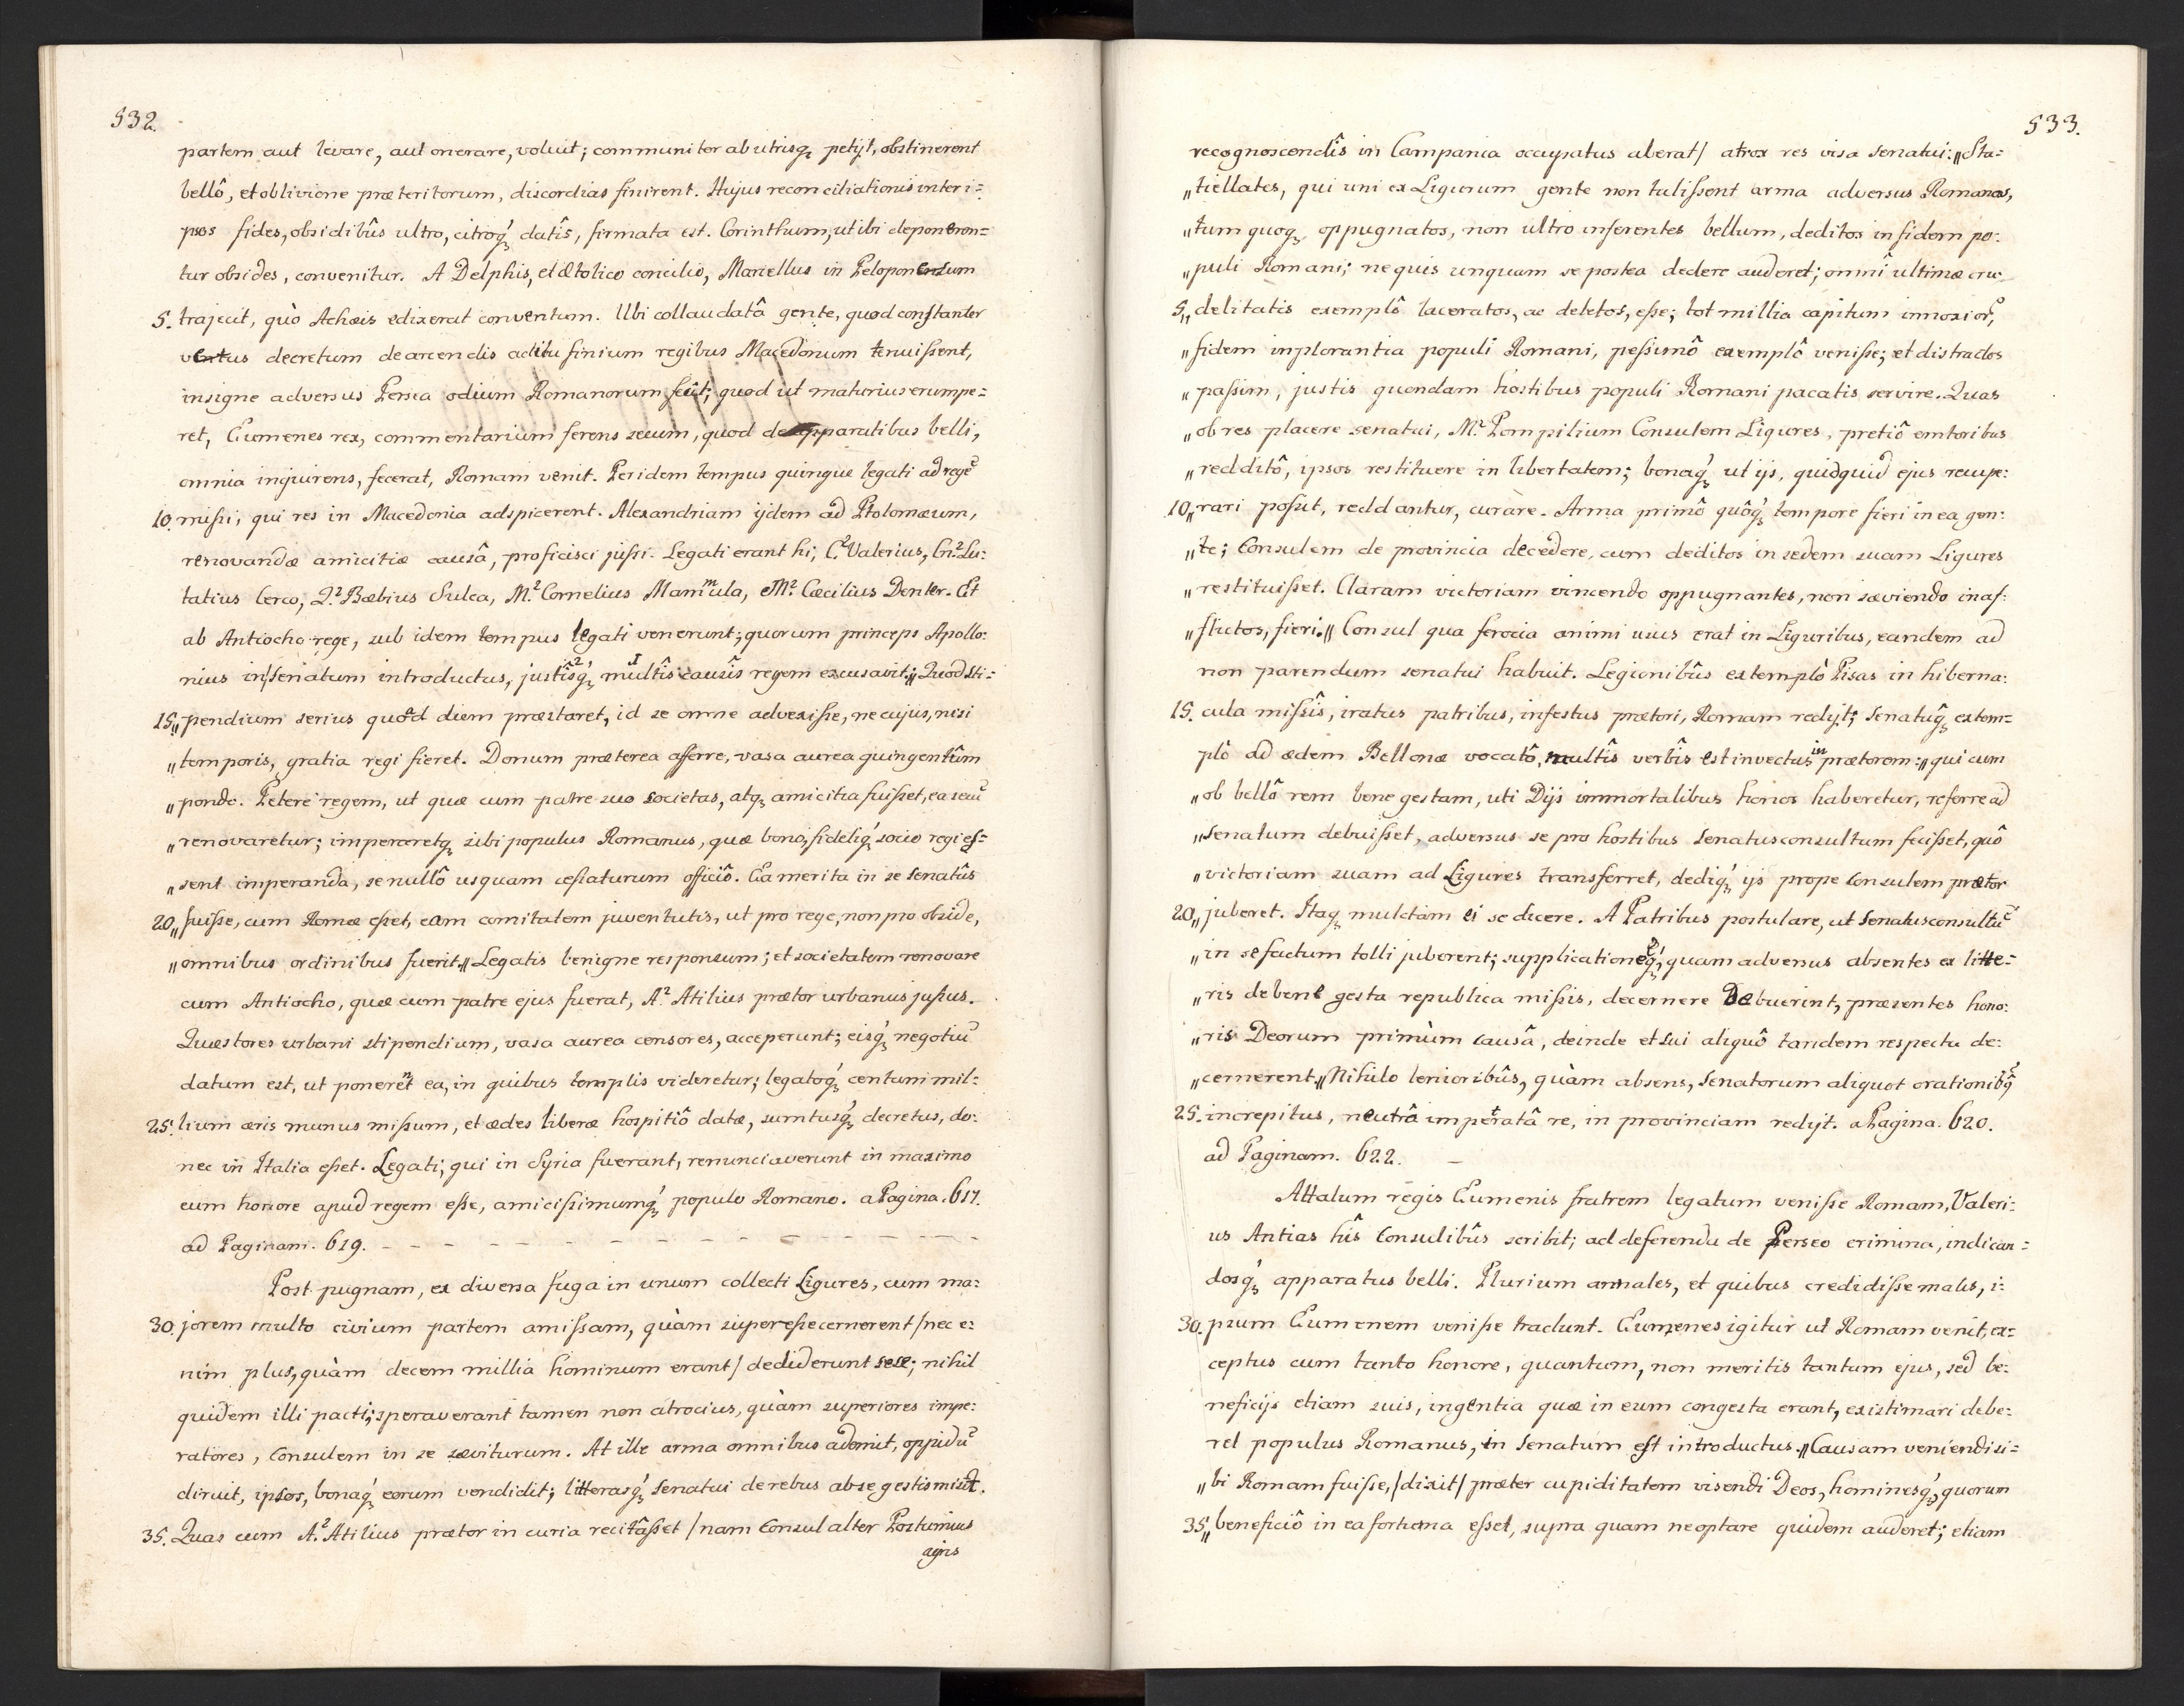 532.
partem aut levare, aut onerare, voluit; communiter ab utrisq₃ petijt, obstinerent
bellô, et oblivione præteritorum, discordias finirent. Hujus reconciliationis inter i=
psos fides, obsidibûs ultro, citroq́₃ datîs, firmata est. Corinthum, ut ibi deponeren=
tur obsides, convenitur. A Delphis, et Ætolico concilio, Marcellus in Peloponesum
5. trajecit, quò Achæis edixerat conventum. Ubi collaudatâ gente, quod constanter
vetus decretum de arcendis aditu finium regibus Macedonum tenuissent,
insigne adversus Persea odium Romanorum fecit; quod ut maturius erumpe=
ret, Eumenes rex, commentarium ferens secum, quod de apparatibus belli,
omnia inquirens, fecerat, Romam venit. Per idem tempus quinque legati ad regē
10. missi, qui res in Macedonia adspicerent. Alexandriam ijdem ad Ptolomæum,
renovandæ amicitiæ causâ, proficisci jussi. Legati erant hi; C.² Valerius, Cn.² Lu:
tatius Cerco, Q.² Bæbius Sulca, M.² Cornelius Mammula, M.² Cæcilius Denter. Et
ab Antiocho rege, sub idem tempus legati venerunt; quorum princeps Apollo:
nius in senatum introductus, justîsq́₃ ² multîs ¹ causîs regem excusavit: „Quod sti=
15. „pendium serius quod diem præstaret, id se omne advexisse, ne cujus, nisi
„temporis, gratia regi fieret. Donum præterea afferre, vasa aurea quingentûm
„pondo. Petere regem, ut quæ cum patre suo societas, atq₃ amicitia fuisset, ea secū
„renovaretur; imperaretq₃ sibi populus Romanus, quæ bono, fideliq́₃ socio regi es=
„sent imperanda, se nullô usquam cessaturum officiô. Ea merita in se senatûs
20. „fuisse, cum Romæ esset, eam comitatem juventutis, ut pro rege, non pro obside,
„omnibus ordinibus fuerit.„ Legatis benigne responsum; et societatem renovare
cum Antiocho, quæ cum patre ejus fuerat, A.² Atilius prætor urbanus jussus.
Quæstores urbani stipendium, vasa aurea censores, acceperunt; eisq́₃ negotiū
datum est, ut ponerent ea, in quibus templis videretur; legatoq́₃ centum mil:
25. lium æris munus missum, et ædes liberæ hospitiô datæ, sumtusq́₃ decretus, do:
nec in Italia esset. Legati, qui in Syria fuerant, renunciaverunt in maximo
eum honore apud regem esse, amicissimumq́₃ populo Romano. a Pagina. 617.
ad Paginam. 619. - - - - - - - - - - - - - - - -
Post pugnam, ex diversa fuga in unum collecti Ligures, cum ma:
30. jorem multo civium partem amissam, quàm superesse cernerent /nec e:
nim plus, quàm decem millia hominum erant/ dediderunt sese; nihil
quidem illi pacti; speraverant tamen non atrocius, quàm superiores impe:
ratores, consulem in se sæviturum. At ille arma omnibus ademit, oppidū
diruit, ipsos, bonaq́₃ eorum vendidit; litterasq́₃ senatui de rebus ab se gestis misit.
35. Quas cum A.² Atilius prætor in curia recitâsset /nam consul alter Postumius
agris
533.
recognoscendîs in Campania occupatus aberat/ atrox res visa senatui: „Sta=
„tiellates, qui uni ex Ligurum gente non tulissent arma adversus Romanos,
„tum quoq₃ oppugnatos, non ultro inferentes bellum, deditos in fidem po:
„puli Romani; ne quis unquam se postea dedere auderet; omnî ultimæ cru:
5. „delitatis exemplô laceratos, ac deletos, esse; tot millia capitum innoxiorū,
„fidem inplorantia populi Romani, pessimô exemplô venisse; et distractos
„passim, justis quondam hostibus populi Romani pacatis servire. Quas
„ob res placere senatui, M.² Pompilium Consulem Ligures, pretiô emtoribus
„redditô, ipsos restituere in libertatem; bonaq́₃ ut ijs, quidquid ejus recupe:
10. „rari possit, reddantur, curare. Arma primô quôq́₃ tempore fieri in ea gen:
„te; Consulem de provincia decedere, cum deditos in sedem suam Ligures
„restituisset. Claram victoriam vincendo oppugnantes, non sæviendo in af:
„flictos, fieri.„ Consul qua ferocia animi usus erat in Liguribus, eandem ad
non parendum senatui habuit. Legionibûs extemplò Pisas in hiberna:
15. cula missîs, iratus patribus, infestus prætori, Romam redijt; senatuq̂₃ extem=
plò ad ædem Bellonæ vocatô, multîs verbîs est invectus in prætorem: „qui cum
„ob bellô rem bene gestam, uti Dijs immortalibus honos haberetur, referre ad
„senatum debuisset, adversus se pro hostibus senatusconsultum fecisset, quô
„victoriam suam ad Ligures transferret, dediq́₃ ijs prope consulem prætor
20. „juberet. Itaq₃ mulctam ei se dicere. A Patribus postulare, ut senatusconsultū
„in se factum tolli juberent; supplicationēq́₃, quam adversus absentes ex litte=
„ris de bene gesta republica missis, decernere debuerint, præsentes hono:
„ris Deorum primùm causâ, deinde et sui aliquô tandem respectu de:
„cernerent.„ Nihilo lenioribûs, quàm absens, senatorum aliquot orationibꝫ̂
25. increpitus, neutrâ impetratâ re, in provinciam redijt. a Pagina. 620.
ad Paginam. 622. –
Attalum regis Eumenis fratrem legatum venisse Romam, Valeri:
us Antias hîs Consulibûs scribit; ad deferenda de Perseo crimina, indican=
dosq́₃ apparatus belli. Plurium annales, et quibus credidisse malis, i:
30. psum Eumenem venisse tradunt. Eumenes igitur ut Romam venit, ex=
ceptus cum tanto honore, quantum, non meritis tantum ejus, sed be:
neficijs etiam suis, ingentia quæ in eum congesta erant, existimari debe:
ret populus Romanus, in senatum est introductus. „Causam veniendi si=
„bi Romam fuisse, /dixit/ præter cupiditatem visendi Deos, hominesq́₃, quorum
35. „beneficiô in ea fortuna esset, supra quam ne optare quidem auderet; etiam